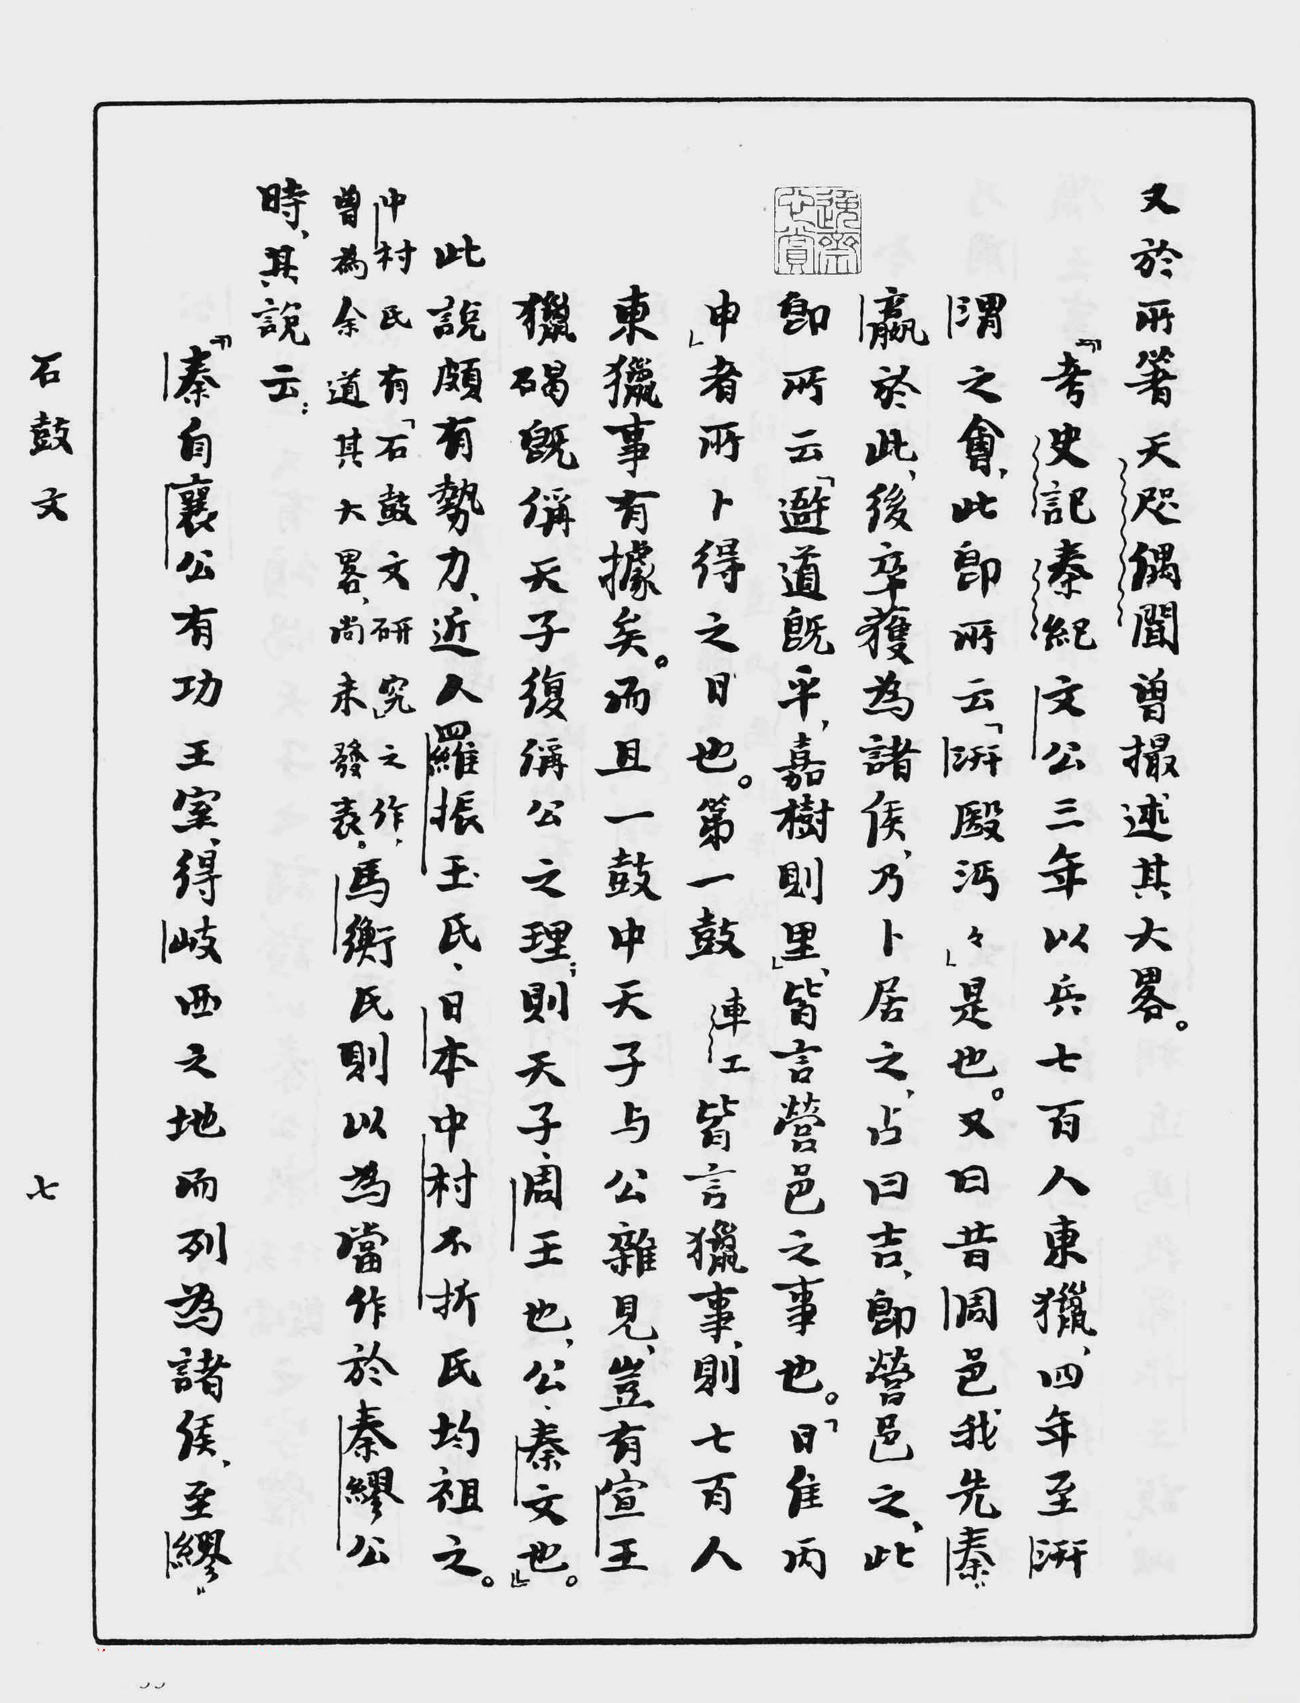 又於所箸天咫偶聞曾撮述其大畧。
『考史記秦紀文公三年以兵七百人東獵、四年至汧
渭之會、此即所云「汧殹沔々」是也。又曰昔周邑我先秦
嬴於此、後卒獲為諸侯、乃卜居之、占曰吉、即營邑之、此
即所云「避道既平、嘉樹則里」、皆言營邑之事也。「日隹丙
申」者所卜得之日也。第一鼓車工皆言獵事、則七百人
東獵事有據矣。而且一鼓中天子与公雜見、豈有宣王
獵碣既偁天子復偁公之理；則天子、周王也、公、秦文也。』
此說頗有勢力、近人羅振玉氏、日本中村不折氏均祖之。
中村氏有「石鼓文研究」之作、
曾為余道其大畧、尚未發表。
馬衡氏則以為當作於秦繆公
時、其說云：
『秦自襄公有功王室、得岐西之地而列為諸侯、至繆
石鼓文
七